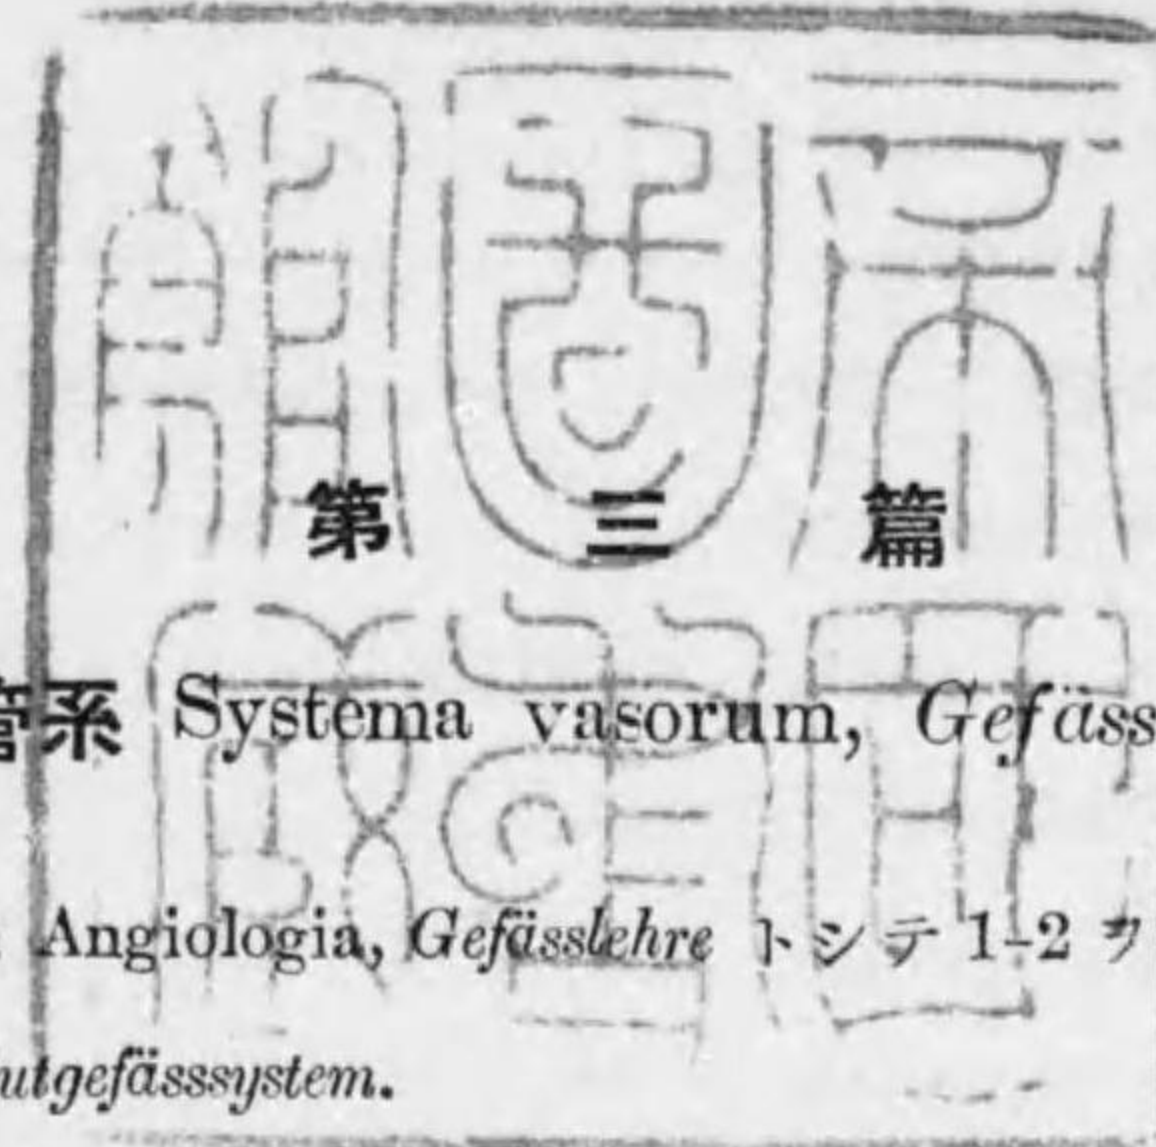 帝國
圖書
館藏
第三篇
管系 Systema vasorum, Gefäss
Angiologia, Gefässlehre トシテ 1-2 ヲ
utgefässsystem.